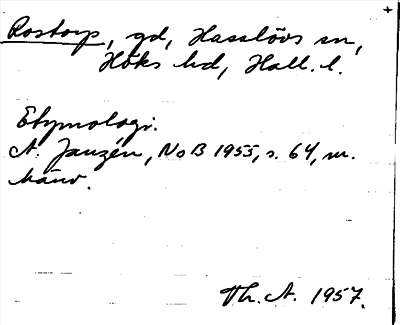 Rostorp, gd, Hasslövs sn,
Höks hd, Hall. l.
Etymologi.
A. Janzén, NoB 1955, s. 64, m.
hänv.
Th. A. 1957.